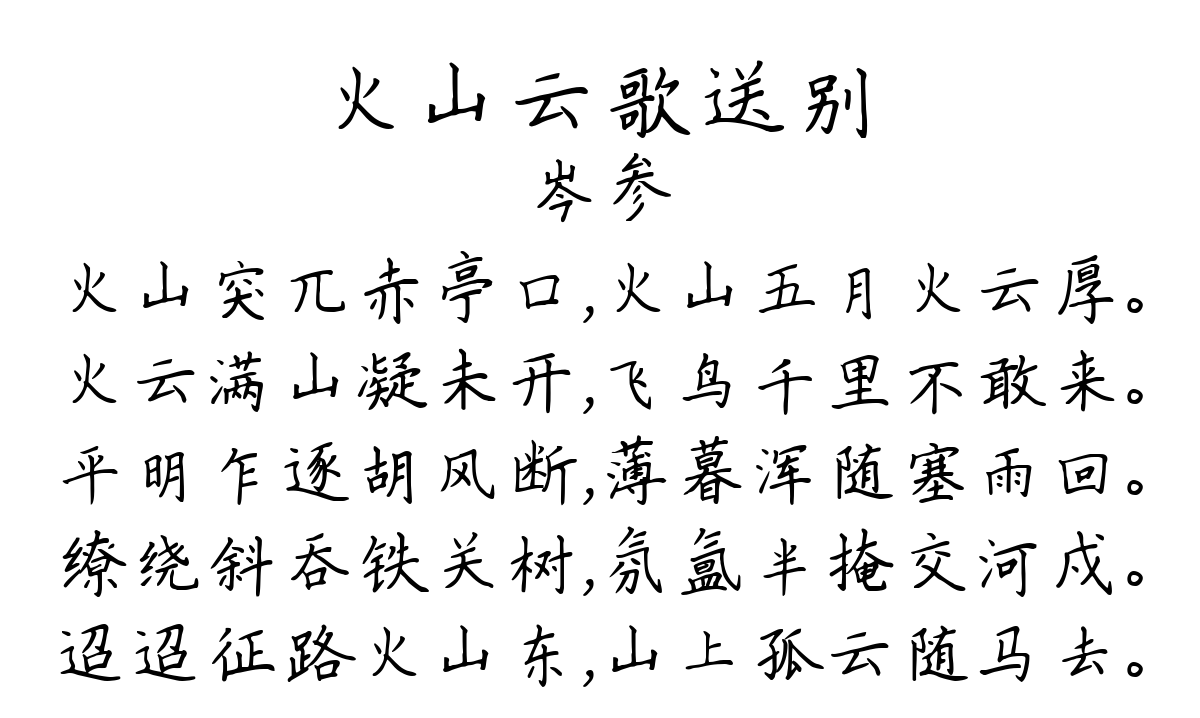 火山云歌送别
岑参
火山突兀赤亭口,火山五月火云厚。
火云满山凝未开,飞鸟千里不敢来。
平明乍逐胡风断,薄暮浑随塞雨回。
缭绕斜吞铁关树,氛氲半掩交河戍。
迢迢征路火山东,山上孤云随马去。